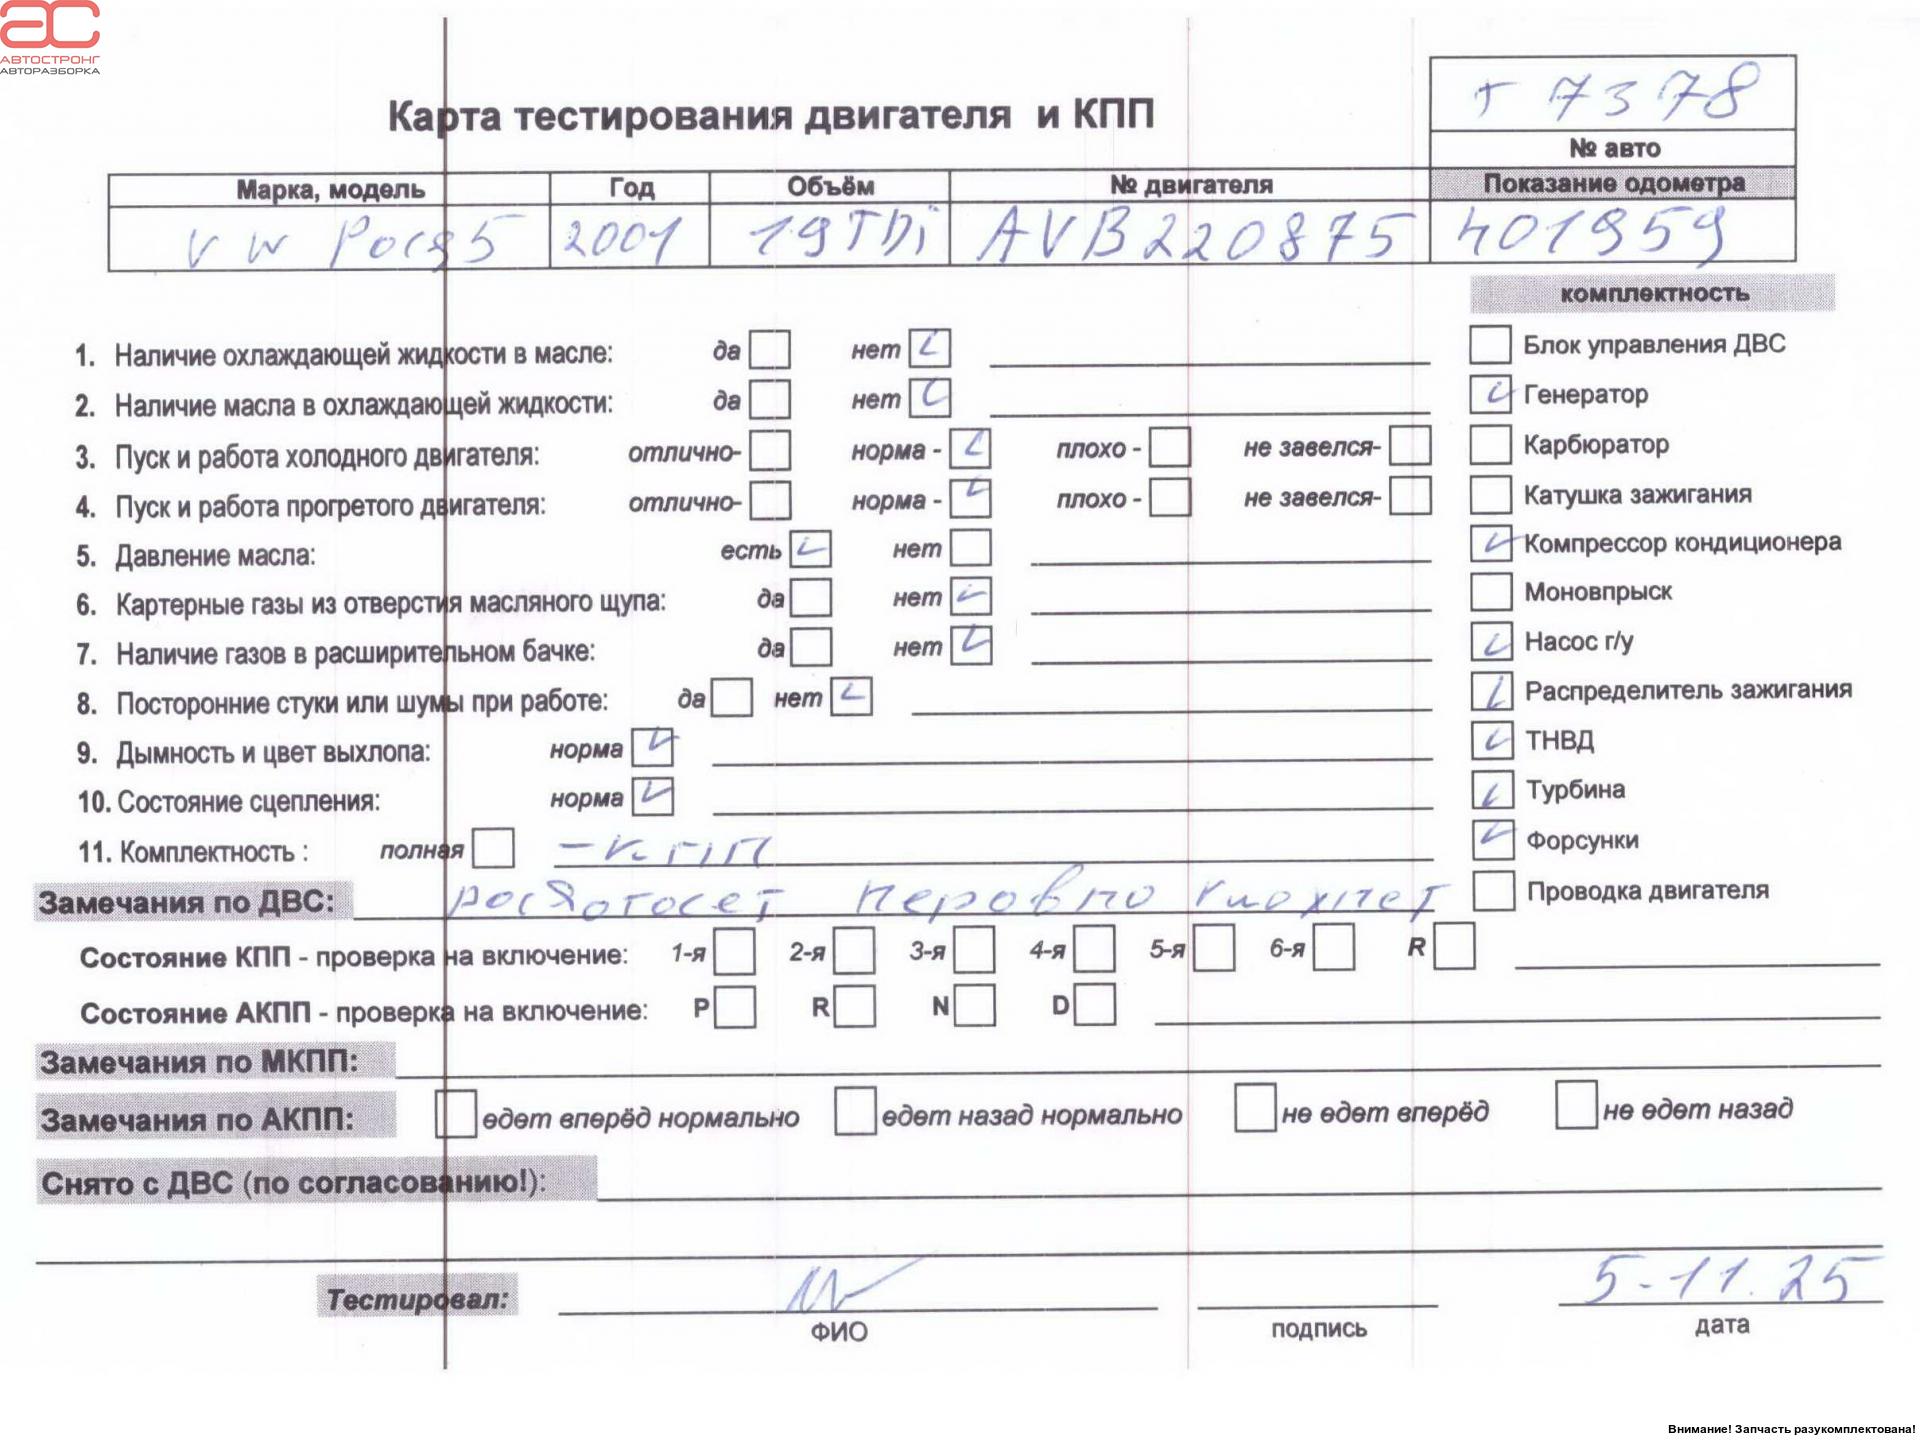 АВТОСТРОНГ
АВТОРАЗБОРКА
Карта тестирования двигателя и КПП
т 7378
№ авто
Марка, модель Год Объём № двигателя Показание одометра
VW 2001 1.9TDi AVB220875 401959
комплектность
1. Наличие охлаждающей жидкости в масле: да нет
Блок управления ДВС
2. Наличие масла в охлаждающей жидкости: да нет
Генератор
3. Пуск и работа холодного двигателя: отлично- норма - плохо - не завелся-
Карбюратор
4. Пуск и работа прогретого двигателя: отлично- норма - плохо - не завелся-
Катушка зажигания
5. Давление масла: есть нет
Компрессор кондиционера
6. Картерные газы из отверстия масляного щупа: да нет
Моновпрыск
7. Наличие газов в расширительном бачке: да нет
Насос г/у
8. Посторонние стуки или шумы при работе: да нет
Распределитель зажигания
9. Дымность и цвет выхлопа: норма
ТНВД
10. Состояние сцепления: норма
Турбина
11. Комплектность : полная - КПП
Форсунки
Замечания по ДВС:
Проводка двигателя
Состояние КПП - проверка на включение: 1-я 2-я 3-я 4-я 5-я 6-я R
Состояние АКПП - проверка на включение: P R N D
Замечания по МКПП:
Замечания по АКПП: едет вперёд нормально едет назад нормально не едет вперёд не едет назад
Снято с ДВС (по согласованию!):
Тестировал: 5.11.25
ФИО подпись дата
Внимание! Запчасть разукомплектована!